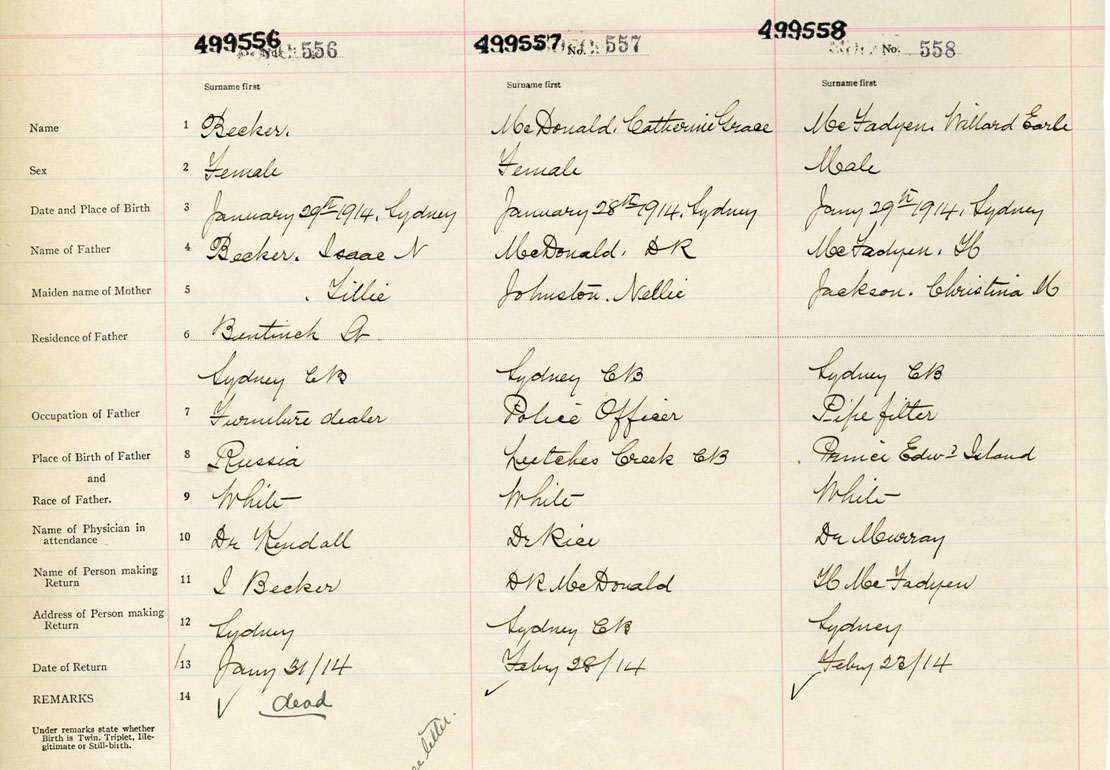 499556 No. 556 499557 No. 557 499558 No. 558
Surname first Surname first Surname first
Name 1 Becker. McDonald. Catherine Grace McFadyen. Willard Earle
Sex 2 Female Female Male
Date and Place of Birth 3 January 29th 1914. Sydney January 28th 1914. Sydney Jany 29th 1914. Sydney
Name of Father 4 Becker. Isaac N McDonald. DR McFadyen. H
Maiden name of Mother 5 . Lillie Johnston. Nellie Jackson. Christina M
Residence of Father 6 Bentinck St
Sydney CB Sydney CB Sydney CB
Occupation of Father 7 Furniture dealer Police Officer Pipe fitter
Place of Birth of Father 8 Russia Leitches Creek CB Prince Edwd Island
and
Race of Father. 9 White White White
Name of Physician in
attendance 10 Dr Kendall Dr Rice Dr Murray
Name of Person making
Return 11 I Becker DR McDonald H McFadyen
Address of Person making
Return 12 Sydney Sydney CB Sydney
Date of Return 13 Jany 31/14 Feby 28/14 Feby 23/14
REMARKS 14 ✓ dead ✓ ✓
Under remarks state whether
Birth is Twin, Triplet, Ille-
gitimate or Still-birth.
letter.